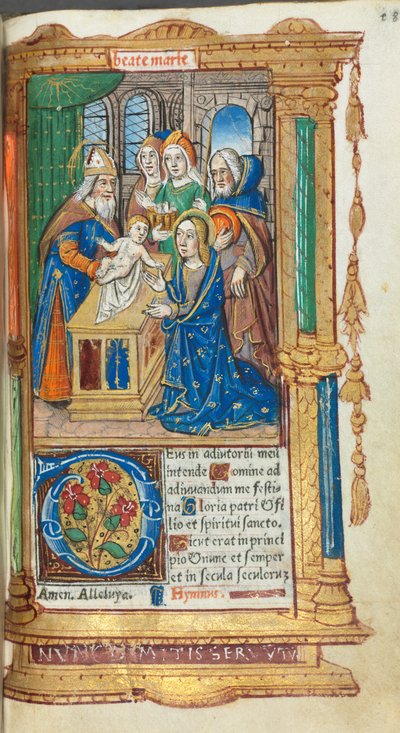 beate marie
Deus in adiutoriū meū
intende Domine ad
adiuvandum me festi
na Gloria patri et fi
lio et spiritui sancto.
Sicut erat in princi
pio et nunc et semper
et in secula seculorum
Amen. Alleluya. Hymnus.
NUNC DIMITIS SERVUTUM